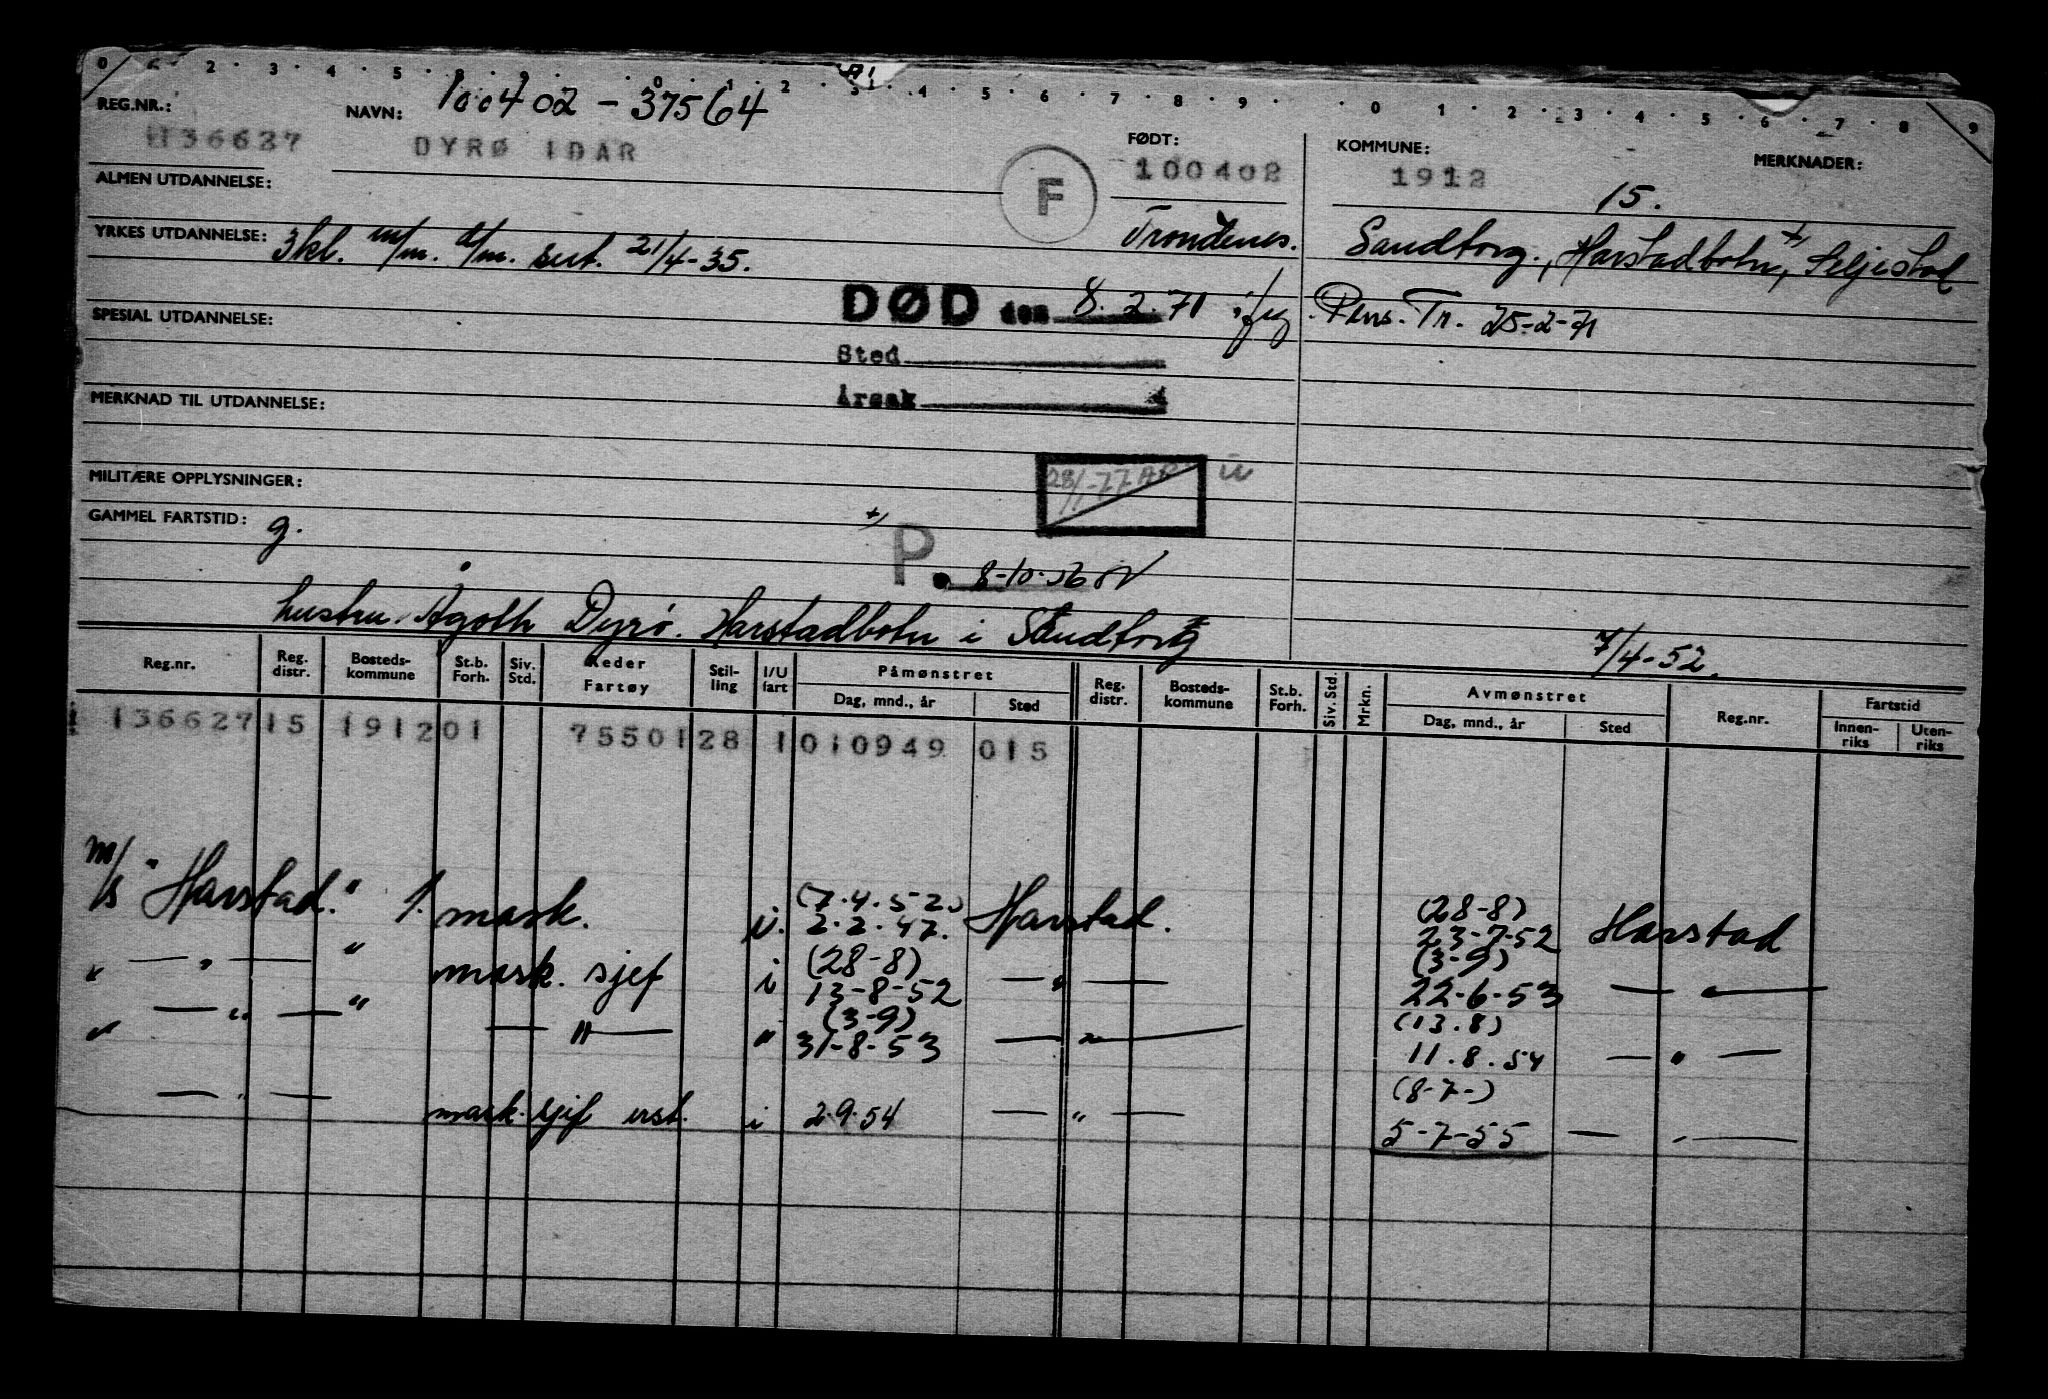 0 6 2 · 3 · 4 · 5 · 8 · 9 · · 0 · 1 · 2 · 3 · 4 · 5 · 6 · 7 · 8 · 9 · · 0 1 · 2 · 3 · 4 · 5 · 6 · 7 · 8 9
REG.NR.: NAVN: 100402 - 37564 FØDT: KOMMUNE: MERKNADER:
136627 DYRØ IDAR F 100402 1912 15.
ALMEN UTDANNELSE:
YRKES UTDANNELSE: 3 kl. m/m. d/m. sert. 21/4-35. Trondenes. Sandtorg, Harstadbotn, Seljestad
DØD den 8.2.71 iflg. Pens. Tr. 25-2-71
SPESIAL UTDANNELSE:
Sted
Årsak
MERKNAD TIL UTDANNELSE:
28/-77
MILITÆRE OPPLYSNINGER:
GAMMEL FARTSTID: g.
P. 8-10-56
hustru Ågoth Dyrø. Harstadbotn i Sandtorg 7/4-52.
Reg.nr. Reg. distr. Bosteds-kommune St.b. Forh. Siv. Std. Reder Fartøy Stil-ling I/U fart Påmønstret Dag, mnd., år Sted Reg. distr. Bosteds-kommune St.b. Forh. Siv. Std. Mrkn. Avmønstret Dag, mnd., år Sted Reg.nr. Fartstid Innen-riks Uten-riks
136627 15 1912 01 7550128 1 010949 015
(7.4.52) (28-8)
M/s "Harstad." 1. mask. i. 2.2.47. Harstad. 23-7-52 Harstad
(28-8) (3-9)
— " — " mask. sjef i 13-8-52 — " — 22-6-53 — " —
(3-9) (13.8)
— " — " — " — " 31-8-53 — " — 11.8.54 — " —
(8-7-)
— " — mask. sjef i 2.9.54 — " — 5-7-55 — " —